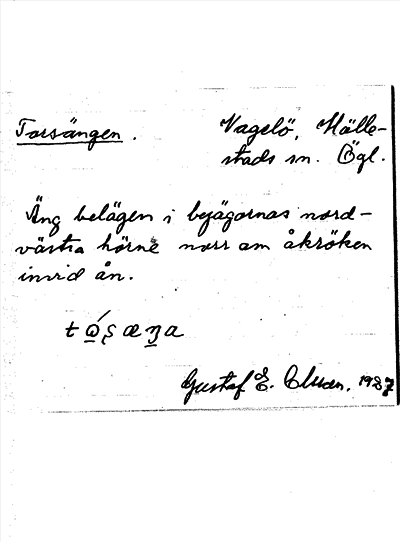 Torsängen. Vagelö, Hälle-
stads sn. Ögl.
Äng belägen i beägornas nord-
västra hörne norr om åkröken
invid ån.
Gustaf E. Olsson. 1927